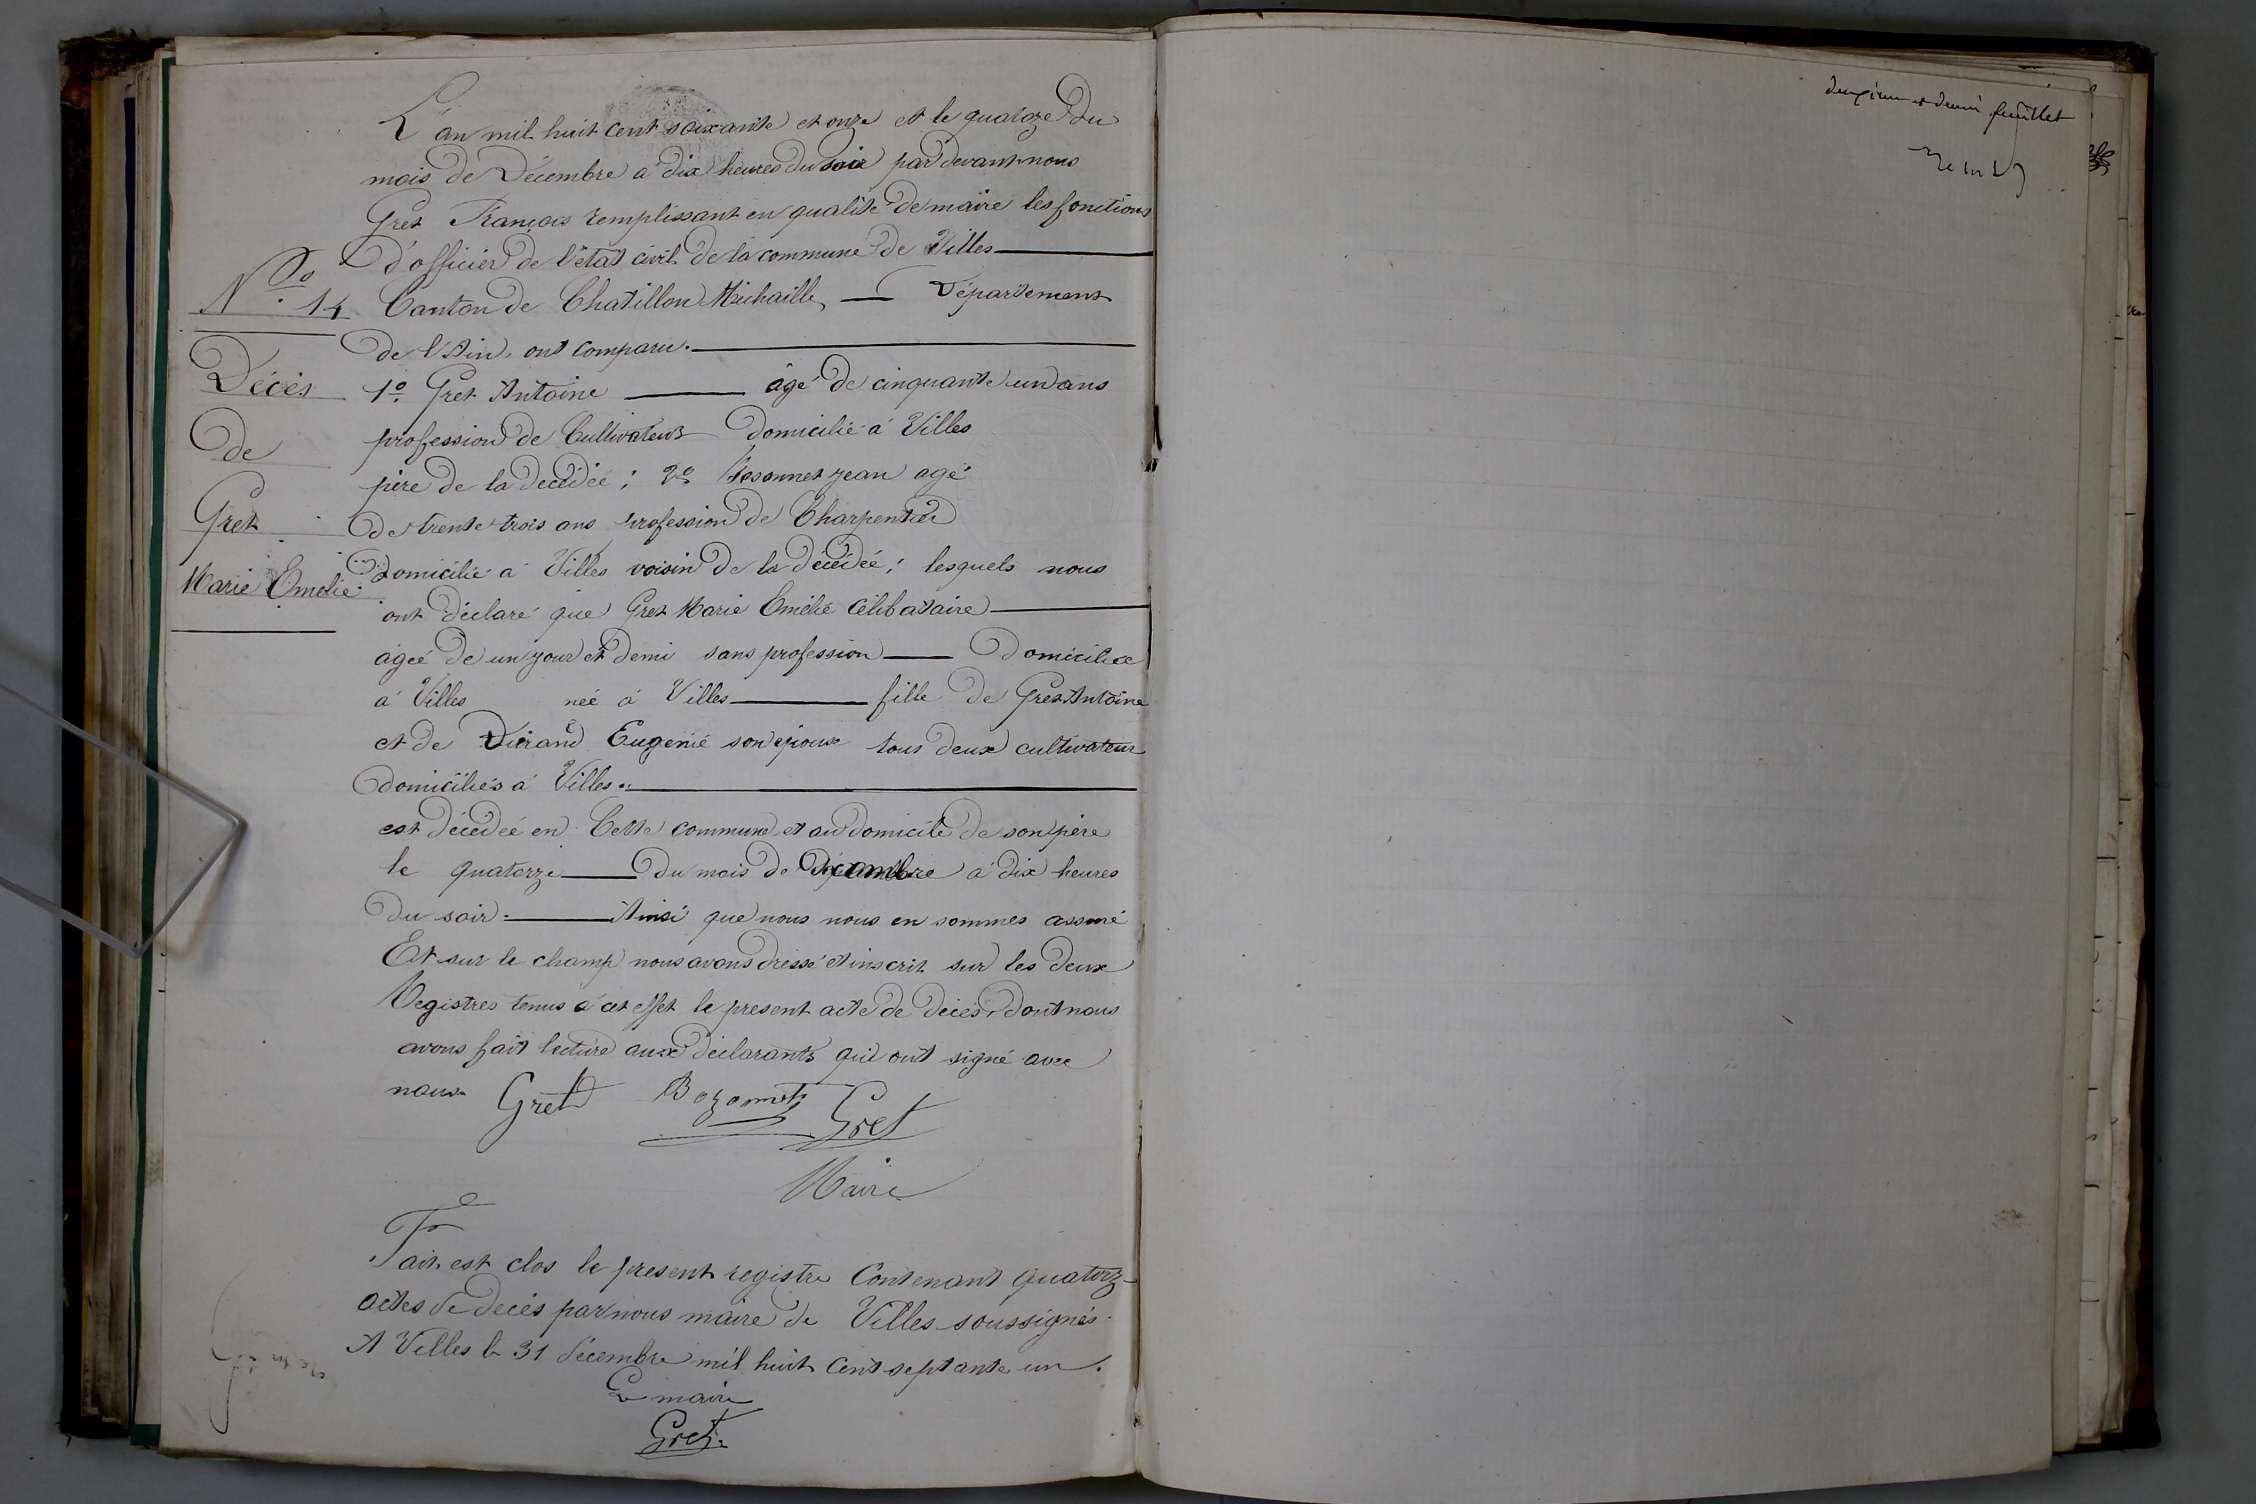 L'an mil huit cent soixante et onze et le quatoze du
mois de Décembre à dix heures du soir par devant nous
Gret François remplissant en qualité de maire les fonctions
d'officier de l'état civil de la commune de Villes
No 14
Canton de Chatillon Michaille Département
de l'Ain, ont comparu.
Décès
de
Gret
Marie Emelie
1º Gret Antoine âgé de cinquante un ans
profession de Cultivateur domicilié à Villes
père de la décédée ; 2º Bosonnet jean agé
de trente trois ans profession de Charpentier
Domicilié à Villes voisin de la décédée ; lesquels nous
ont déclaré que Gret Marie Emélie célibataire
âgeé de un jour et demi sans profession domiciliée
à Villes neé à Villes fille de Gret Antoine
et de Durand Eugenie son épouse tous deux cultivateur
domiciliés à Villes.
est décedeé en Cette commune et au domicile de son père
le quatorze du mois de Décembre à dix heures
du soir. Ainsi que nous nous en sommes assuré
Et sur le champ nous avons dressé et inscrit sur les deux
Registres tenus à cet effet le present acte de décès, dont nous
avons fait lecture aux déclarants qui ont signé avec
nous. Gret Bozonnet Gret
Maire
Fait est clos le present registre Contenant quatorz
actes de decès par nous maire de Villes soussignés.
A Villes le 31 décembre mil huit cent septante un.
Le maire
Gret
feuillet